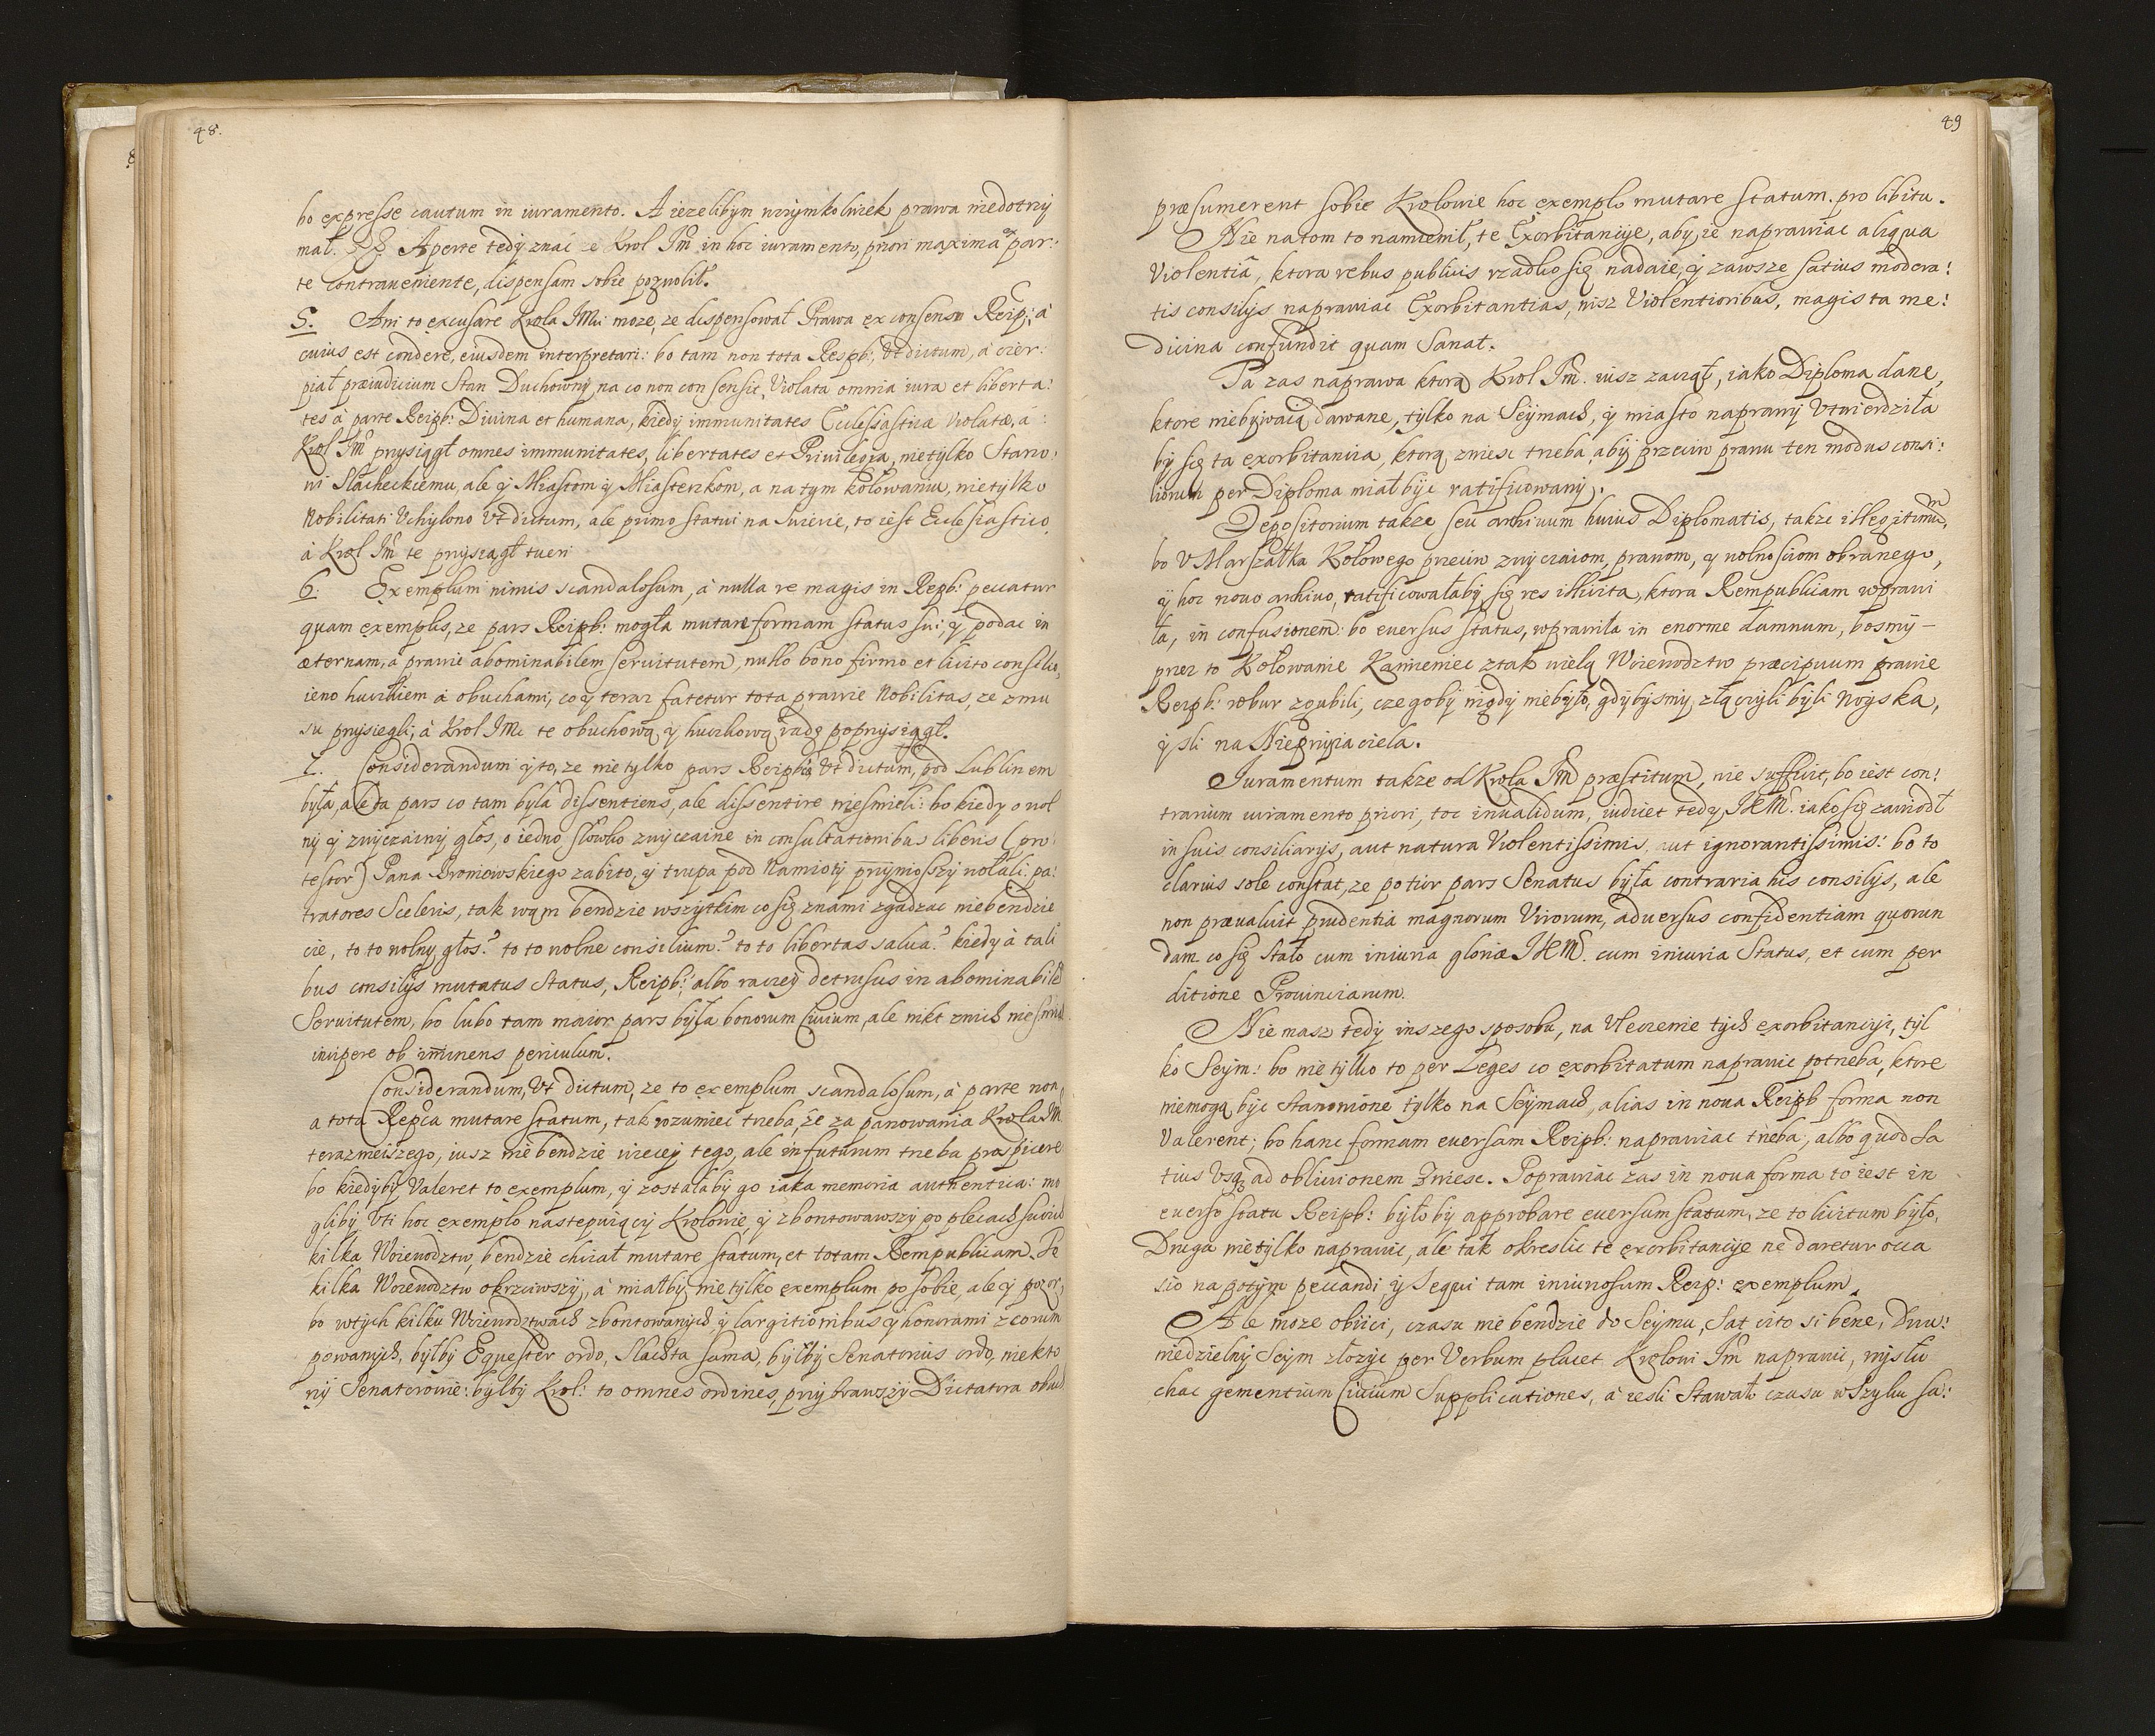 48.
bo expresse cautum in iuramento. A iezelibym wczymkolwiek prawa niedotrzy
mał. &c. Aperte tedy znać ze Krol Jm̃ in hoc iuramento, priori maxima ex par:
te contraveniente, dispensam sobie pozwolił.
5. Ani to excusare Krola JMci moze, ze dispensował Prawa ex consensu Reip:, à
cuius est condere, eiusdem interpretari: bo tam non tota Respb:, Vt dictum, à cier:
piał præiudicium Stan Duchowny, na co non consensit, Violata omnia iura et liberta:
tes à parte Reipb: Divina et humana, kiedy immunitates Ecclesiasticæ Violatæ, a:
Krol Jm̃ przysiągł omnes immunitates, libertates et Privilegia, nietylko Stano:
wi Slacheckiemu, ale y Miastom y Miasteczkom, a na tym kołowaniu, nietylko
Nobilitati Vchylono Vt dictum, ale primo statui na Swiecie, to iest Ecclesiastico,
à Krol Jm̃ te przysiągł tueri
6. Exemplum nimis scandalosum, à nulla re magis in Repb: peccatur
quam exemplis, ze pars Reipb: mogła mutare formam status sui y podac in
æternam, à prawie abominabilem servitutem, nullo bono firmo et licito consilio,
ieno huczkiem à obuchami, co y teraz fatetur tota prawie Nobilitas, ze zmu
su przysiegli, à Krol JMc te obuchową y huczkową radę poprzysiągł.
7. Considerandum y to, ze nie tylko pars Reipbcæ Vt dictum, pod Lublinem
była, ale ta pars co tam była dissentiens, ale dissentire niesmieli: bo kiedy o wol
ny y zwyczainy głos, o iedno słowko zwyczaine in consultationibus liberis (pro:
testor) Pana Broniowskiego zabito, y trupa pod Namioty przyniosszy wołali: pa:
tratores Sceleris, tak wąm bendzie wszytkim co się znami zgadzac niebendzie
cie, to to wolny głos? to to wolne consilium? to to libertas salva? kiedy à tali
bus consilys mutatus Status, Reipb: albo raczey detrusus in abominabilẽ
Servitutem, bo lubo tam maior pars była bonorum Civium, ale nikt znich niesmiał
incipere ob im̃inens periculum.
Considerandum, Vt dictum, ze to exemplum scandalosum, à parte non
a tota Repca mutare statum, tak rozumiec trzeba, że za panowania Krola Jm̃
terazneiszego, iusz niebendzie wiecey tego, ale in futurum trzeba prospicere
bo kiedyby Valeret to exemplum, y zostałaby go iaka memoria authentica: mo
gliby Vti hoc exemplo nastepuiący Krolowie, y zbontowawszy po plecach swoich
kilka Woiewodztw, bendzie chciał mutare statum, et totam Rempublicam. Te
kilka Woiewodztw okrzciwszy, à miałby nie tylko exemplum po sobie, ale y pozor,
bo wtych kilku Woiewodztwach zbontowanych, y largitionibus y honorami zcorum
powanych, byłby Equester ordo, Slachta sama, byłby Senatorius ordo, niekto
rzy Senatorowie: byłby Krol: to omnes ordines, przybrawszy Dictatora obuch
49
præsumerent sobie Krolowie hoc exemplo mutare statum pro libitu.
Nie natom to namienił, te Exorbitancyje, aby ie naprawiac aliqua
Violentiâ, ktora rebus publicis rzadko się nadaie, y zawsze satius modera:
tis consilys naprawiac Exorbitantias, nisz Violentioribus, magis ta me:
dicina confundit quam Sanat.
Ta zas naprawa ktorą Krol Jm̃. iusz zaciął, iako Diploma dane,
ktore niebywaią dawane, tylko na Seymach, y miasto naprawy Vtwierdziła
by się ta exorbitancia, ktorą zniesc trzeba, aby przeciw prawu ten modus consi:
liorum per Diploma miał byc ratificowany.
Depositorium takze seu archivum huius Diplomatis, takze illegitimũ,
bo V Marszałka Kołowego przeciw zwyczaiom, prawom, y wolnosciom obranego,
y hoc novo archivo, ratificowałaby się res illicita, ktora Rempublicam wprawi
ła, in confusionem: bo eversus status, wprawiła in enorme damnum, bosmy –
przez to Kołowanie Kamieniec ztak wielą Woiewodztw præcipuum prawie
Reipb: robur zgubili, czegoby nigdy niebyło, gdybysmy złączyli byli Woyska,
y sli na Nieprzyiaciela.
Juramentum takze od Krola Jm̃ præstitum, nie sufficit, bo iest con:
trarium iuramento priori, toc invalidum, iudicet tedy JKM̃. iako się zawiodł
in suis consiliarys, aut natura Violentissimis, aut ignorantissimis: bo to
clarius sole constat, ze potior pars Senatus była contraria his consilys, ale
non prævaluit prudentia magnorum Virorum, adversus confidentiam quorun
dam. co się stało cum iniuria gloriæ JKM̃. cum iniuria Status, et cum per
ditione Provinciarum.
Nie masz tedy inszego sposobu, na Vleczenie tych exorbitancyi, tyl
ko Seym: bo nie tylko to per Leges co exorbitatum naprawic potrzeba, ktore
niemogą byc stanowione tylko na Seymach, alias in nova Reipb forma non
Valerent; bo hanc formam eversam Reipb: naprawiac trzeba, albo quod sa
tius Vsq. ad oblivionem Zniesc. Poprawiac zas in nova forma to iest in
everso statu Reipb: byłoby approbare eversum statum, ze to licitum było,
Druga nietylko naprawic, ale tak okreslic te exorbitancije ne daretur occa
sio napotym peccandi, y sequi tam iniuriosum Reip: exemplum.
Ale moze obiici, czasu nie bendzie do Seymu, Sat cito si bene, Dwu:
niedzielny Seym złozyc per Verbum placet Krolowi Jm̃ naprawic, wysłu
chac gementium Civium Supplicationes, à iesli Stawało czasu wSzyku sa: